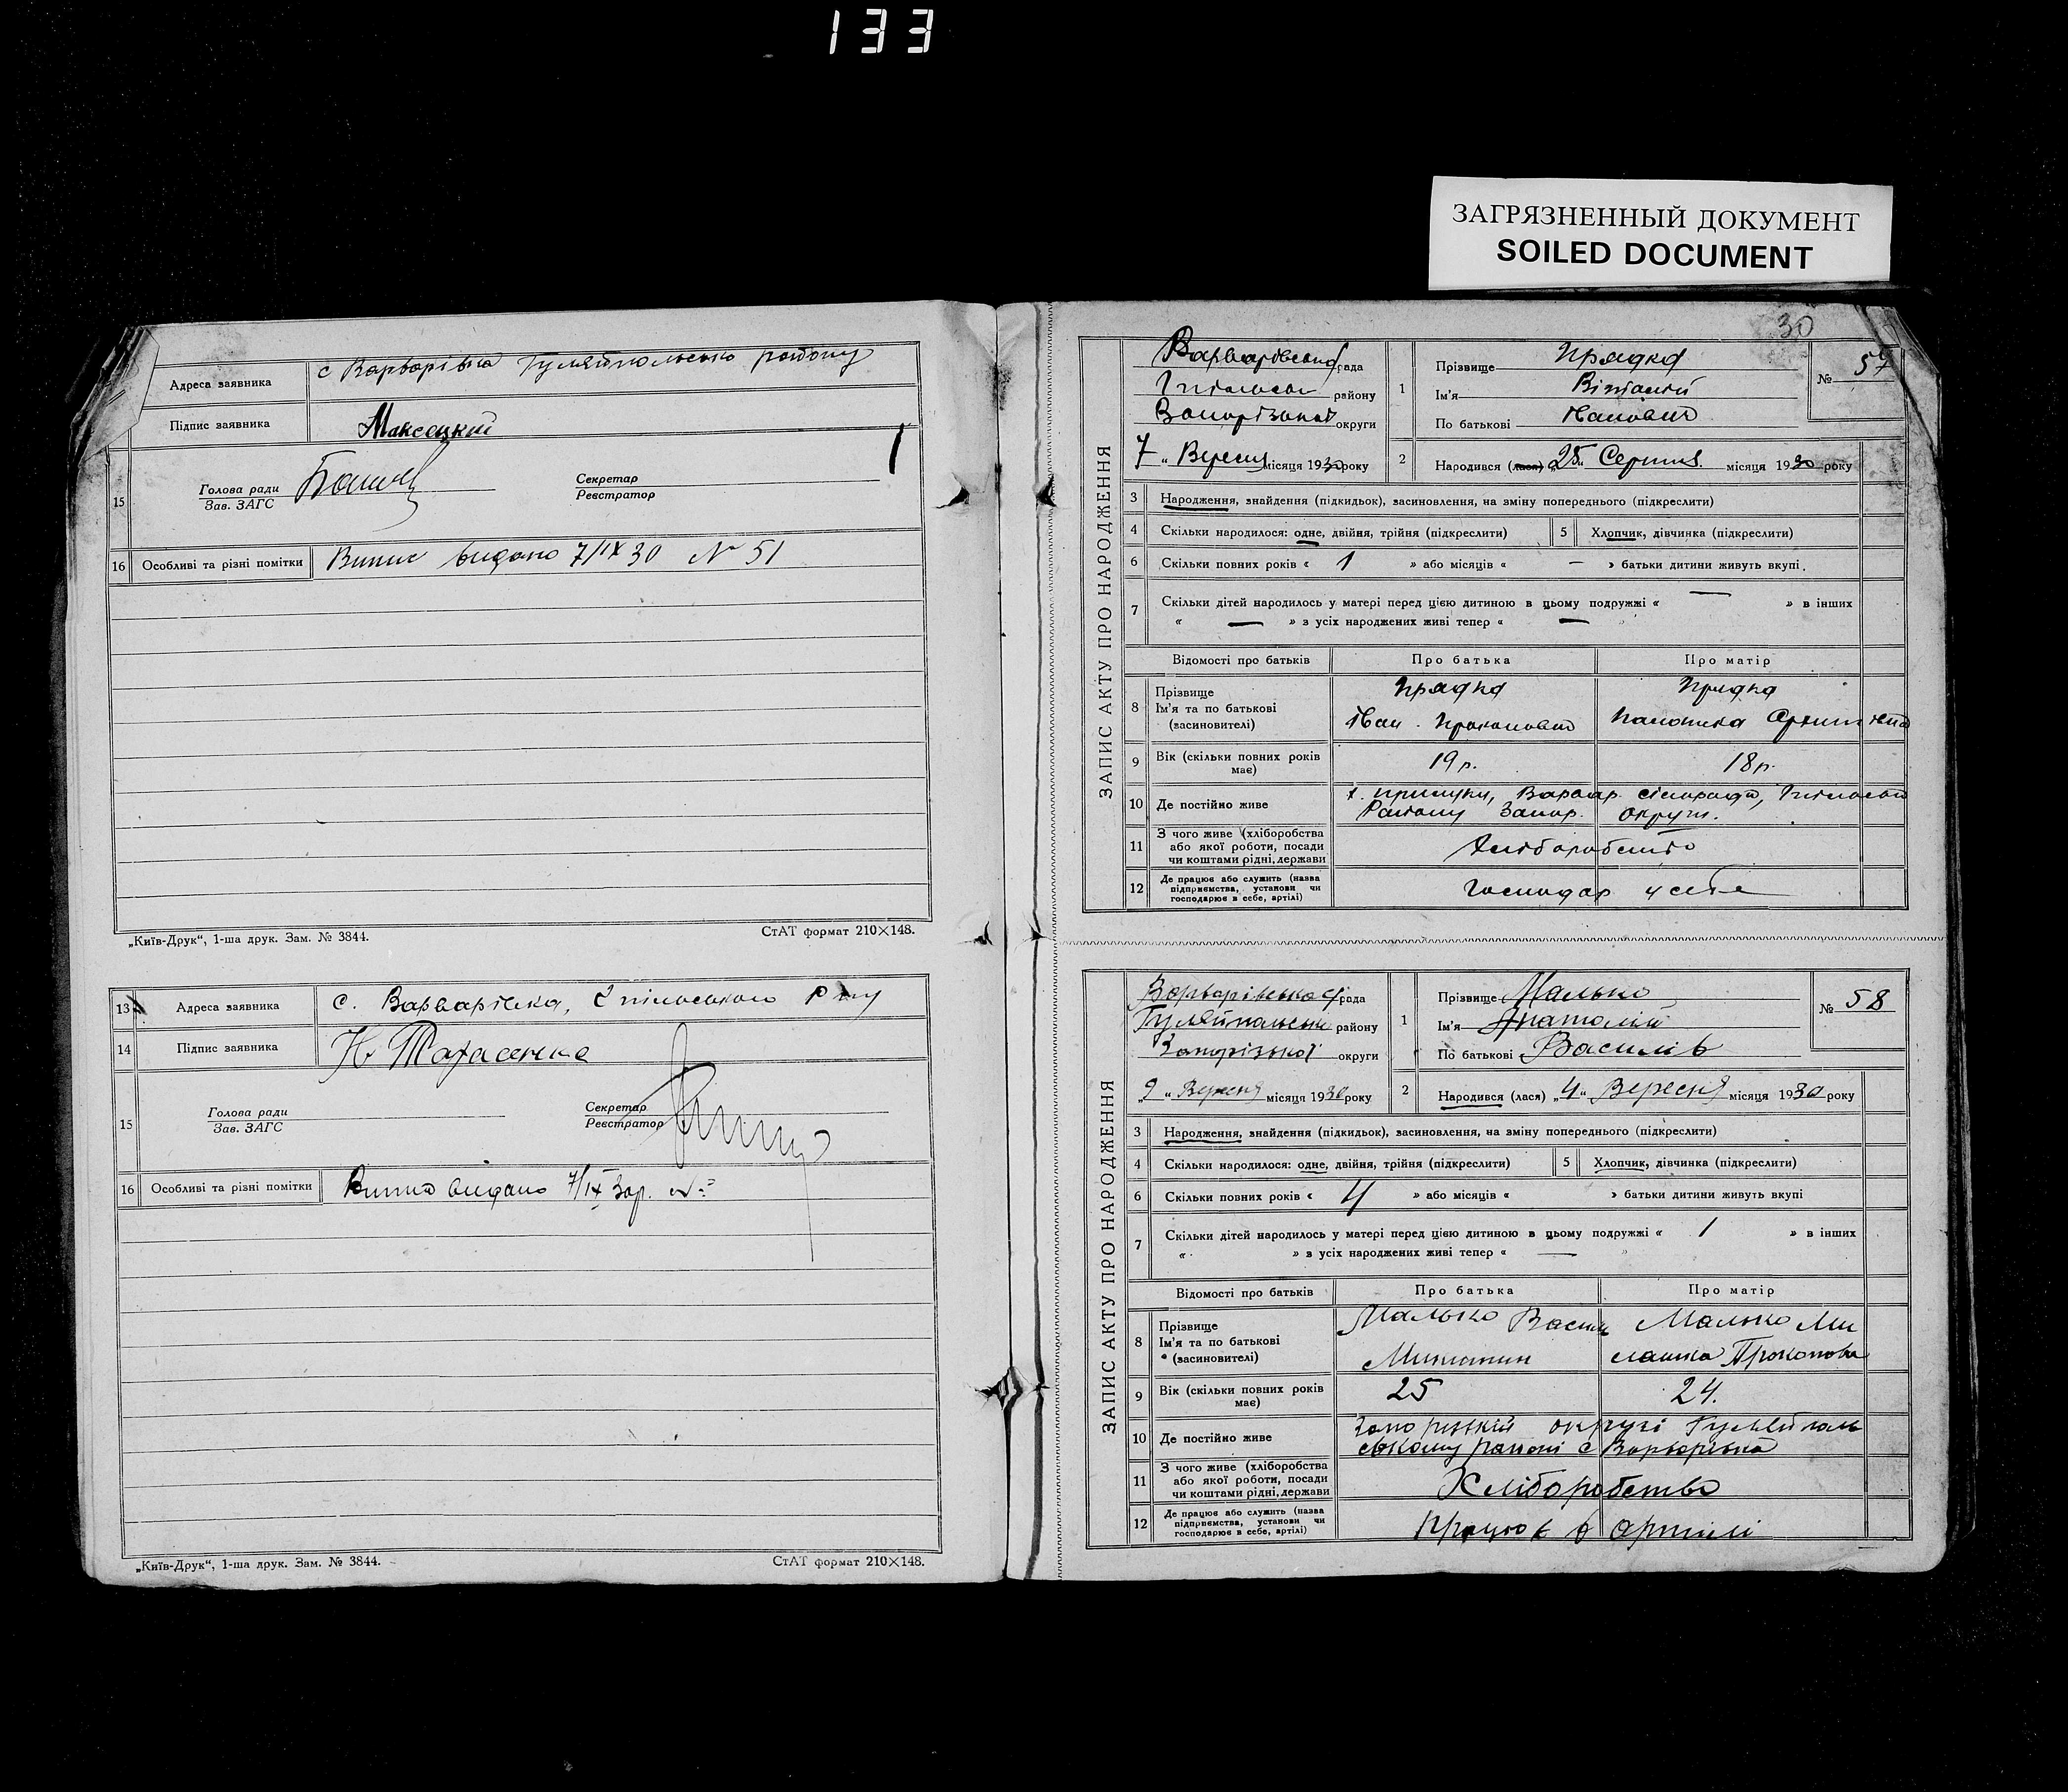 133
ЗАГРЯЗНЕННЫЙ ДОКУМЕНТ
SOILED DOCUMENT
Адреса заявника с Варварівка Гуляйпольсько району
Підпис заявника Максецкий
15 Голова ради Секретар
Зав. ЗАГС Реєстратор
16 Особливі та різні помітки Випис видано 7/IX 30 № 51
„Київ-Друк“, 1-ша друк. Зам. № 3844. СтАТ формат 210×148.
13 Адреса заявника с. Варварівка,
14 Підпис заявника Тарасенко
15 Голова ради Секретар
Зав. ЗАГС Реєстратор
16 Особливі та різні помітки Випис видано 7/IX 30р. №
„Київ-Друк“, 1-ша друк. Зам. № 3844. СтАТ формат 210×148.
30
ЗАПИС АКТУ ПРО НАРОДЖЕННЯ
Варварівська рада
району
Запорізької округи
7 „ Вересня місяця 1930 року
1 Прізвище Прядка
Ім'я Віталій
По батькові Іванович
№ 57
2 Народився (лася) „25“ Серпня місяця 1930 року
3 Народження, знайдення (підкидьок), засиновлення, на зміну попереднього (підкреслити)
4 Скільки народилося: одне, двійня, трійня (підкреслити) 5 Хлопчик, дівчинка (підкреслити)
6 Скільки повних років « 1 » або місяців « — » батьки дитини живуть вкупі.
7 Скільки дітей народилось у матері перед цією дитиною в цьому подружжі « — » в інших
« — » з усіх народжених живі тепер « — »
Відомості про батьків Про батька Про матір
8 Прізвище Прядка Прядка
Ім'я та по батькові (засиновителі) Іван Прокопович
9 Вік (скільки повних років має) 19р. 18р.
10 Де постійно живе Варвар. сільради,
Району Запор. округи.
11 З чого живе (хліборобства або якої роботи, посади чи коштами рідні, держави Хліборобство
12 Де працює або служить (назва підприємства, установи чи господарює в себе, артілі) Господар у себе
ЗАПИС АКТУ ПРО НАРОДЖЕННЯ
Варварівська рада
Гуляйпольськ району
Запорізької округи
„9“ Вересня місяця 1930 року
1 Прізвище Малько
Ім'я Анатолій
По батькові Василів
№ 58
2 Народився (лася) „4“ Вересня місяця 1930 року
3 Народження, знайдення (підкидьок), засиновлення, на зміну попереднього (підкреслити)
4 Скільки народилося: одне, двійня, трійня (підкреслити) 5 Хлопчик, дівчинка (підкреслити)
6 Скільки повних років « 4 » або місяців « » батьки дитини живуть вкупі
7 Скільки дітей народилось у матері перед цією дитиною в цьому подружжі « 1 » в інших
« » з усіх народжених живі тепер « — »
Відомості про батьків Про батька Про матір
8 Прізвище Малько Васил Малько Ми
Ім'я та по батькові (засиновителі) лашка Прокопова
9 Вік (скільки повних років має) 25 24.
10 Де постійно живе округі Гуляйполь
ському районі с Варварівка
11 З чого живе (хліборобства або якої роботи, посади чи коштами рідні, держави Хліборобство
12 Де працює або служить (назва підприємства, установи чи господарює в себе, артілі) Працює в артілі